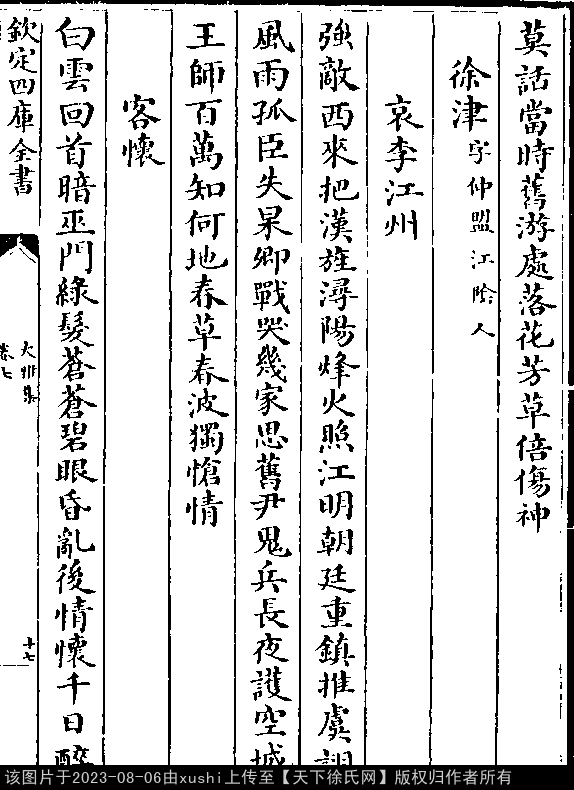 莫話當時舊游處落花芳草倍傷神
徐津字仲盟江陰人
哀李江州
強敵西來把漢旌潯陽烽火照江明朝廷重鎮推虞詡
風雨孤臣失杲卿戰哭幾家思舊尹鬼兵長夜護空城
王師百萬知何地春草春波獨愴情
客懷
白雲回首暗巫門綠髮蒼蒼碧眼昏亂後情懷千日醉
欽定四庫全書
大雅集
卷七
十七
该图片于2023-08-06由xushi上传至【天下徐氏网】版权归作者所有